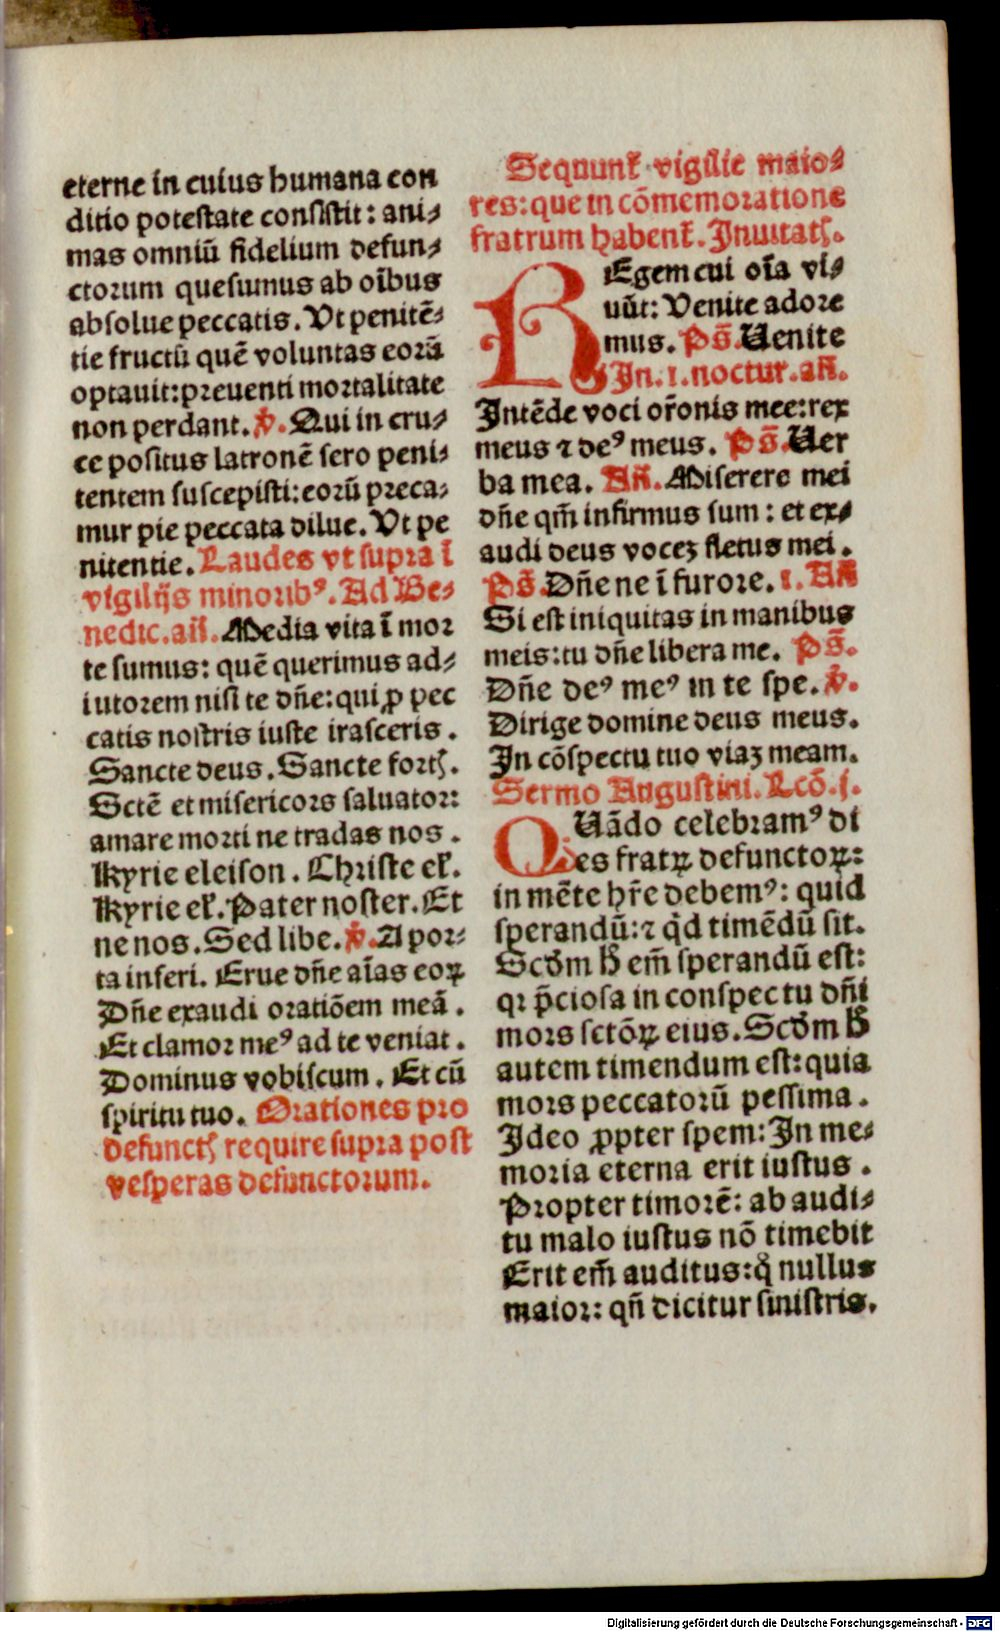 eterne in cuius humana con
ditio potestate consistit: ani⸗
mas omniū fidelium defun⸗
ctorum quesumus ab oībus
absolue peccatis. Ut penitē⸗
tie fructū quē voluntas eorū
optauit: preuenti mortalitate
non perdant. ℣. Qui in cru⸗
ce positus latronē sero peni⸗
tentem suscepisti: eorū preca⸗
mur pie peccata dilue. Ut pe
nitentie. Laudes vt supra ī
vigilijs minoribꝰ. Ad Be⸗
nedic. añ. Media vita ī mor
te sumus: quē querimus ad⸗
iutorem nisi te dñe: qui ꝓ pec
catis nostris iuste irasceris.
Sancte deus. Sancte fortꝭ.
Sctē et misericors saluator:
amare morti ne tradas nos.
Kyrie eleison. Christe eł.
Kyrie eł. Pater noster. Et
ne nos. Sed libe. ℣. A por⸗
ta inferi. Erue dñe aīas eoꝝ
Dñe exaudi oratiōem meā.
Et clamor meꝰ ad te veniat.
Dominus vobiscum. Et cū
spiritu tuo. Orationes pro
defunctꝭ require supra post
vesperas defunctorum.
Sequunt᷑ vigilie maio⸗
res: que in cōmemoratione
fratrum habent᷑. Inuitatꝭ.
REgem cui oīa vi⸗
uūt: Venite adore
mus. Ps̄. Uenite
In. 1. noctur. añ.
Intēde voci or̄onis mee: rex
meus ⁊ deꝰ meus. Ps̄. Uer
ba mea. Añ. Miserere mei
dñe qm̄ infirmus sum: et ex⸗
audi deus voceꝫ fletus mei.
Ps̄. Dñe ne ī furore. 1. Añ
Si est iniquitas in manibus
meis: tu dñe libera me. Ps̄.
Dñe deꝰ meꝰ in te spe. ℣.
Dirige domine deus meus.
In cōspectu tuo viaꝫ meam.
Sermo Augustini. Lcō. j.
QUādo celebramꝰ di
es fratꝝ defunctoꝝ:
in mēte hr̄e debemꝰ: quid
sperandū: ⁊ qd̓ timēdū sit.
Scd̓m h̄ em̄ sperandū est:
qꝛ p̄ciosa in conspectu dñi
mors sctōꝝ eius. Scd̓m h̄
autem timendum est: quia
mors peccatorū pessima.
Ideo ꝓpter spem: In me⸗
moria eterna erit iustus.
Propter timorē: ab audi⸗
tu malo iustus nō timebit
Erit em̄ auditus: qͦ nullus
maior: qñ dicitur sinistris.
Digitalisierung gefördert durch die Deutsche Forschungsgemeinschaft - DFG